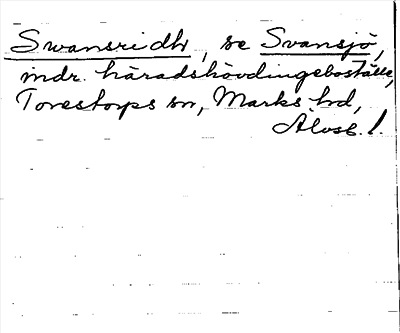 Swansridh, se Svansjö,
mdr. häradshövdingeboställe,
Torestorps sn, Marks hd,
Älvsb. l.